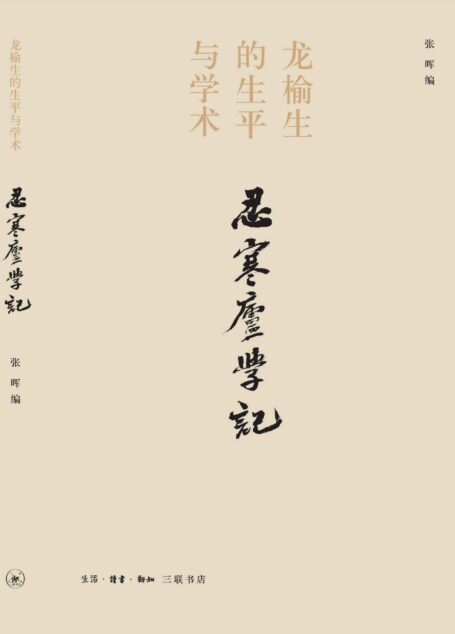 张晖编
龙榆生
的生平
与学术
忍寒廬學記
生活·讀書·新知 三联书店
龙榆生的生平与学术
忍寒廬學記
张晖编